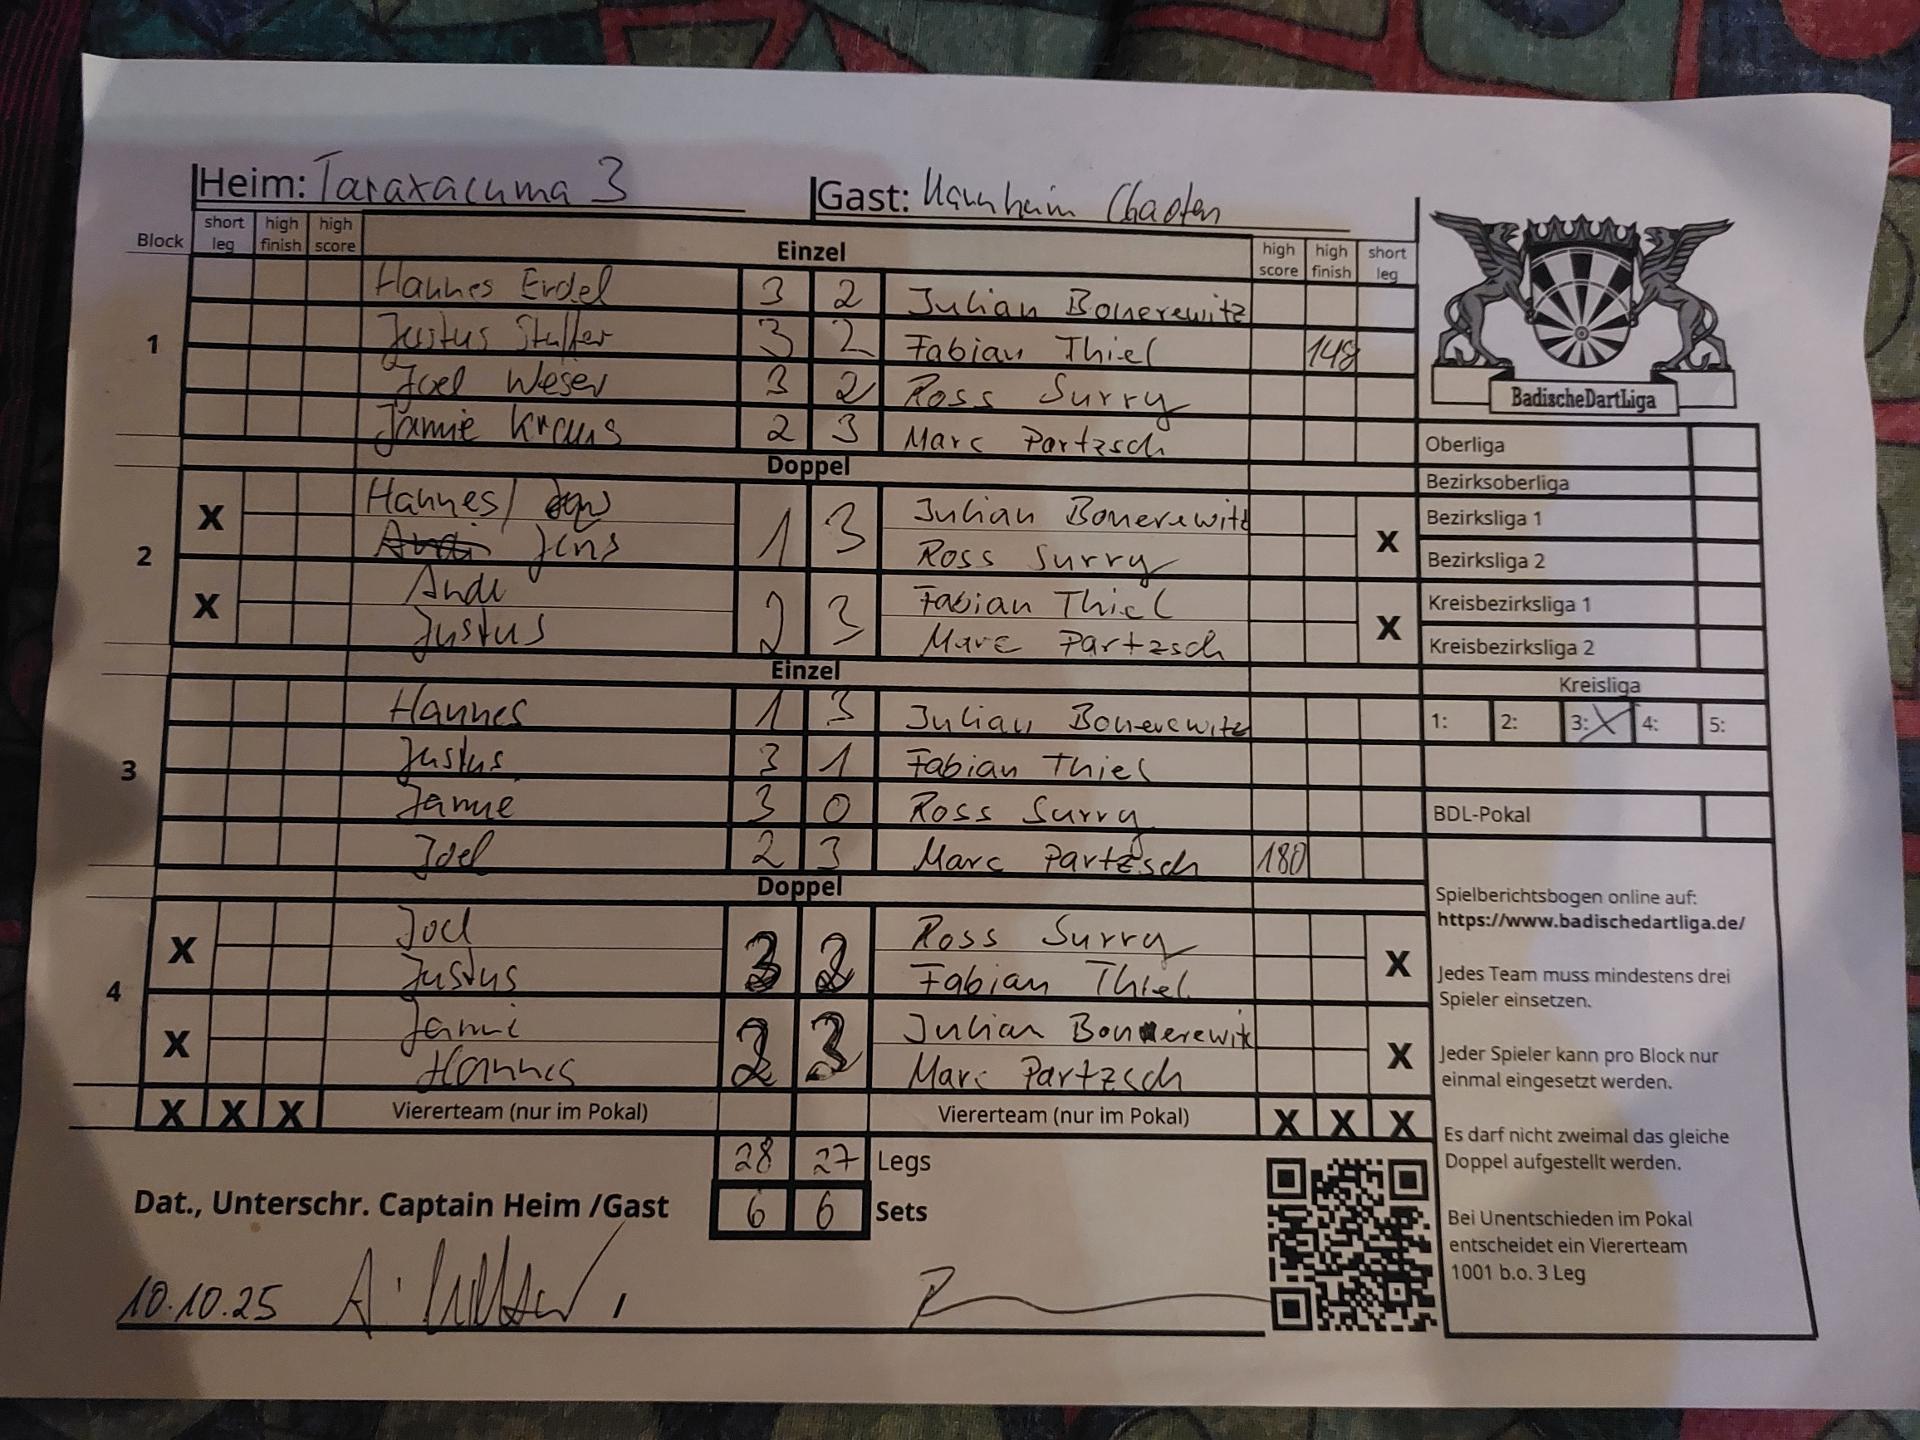 Heim: Taraxacuma 3 Gast: Mannheim Chaoten
Block short leg high finish high score Einzel high score high finish short leg
1
Hannes Erdel 3 2 Julian Bonerewitz
Justus 3 2 Fabian Thiel 148
Joel Weser 3 2 Ross Surry
Jamie Kraus 2 3 Marc Partzsch
Doppel
2
X Hannes/ 1 3 Julian Bonerewitz X
Jens Ross Surry
X Andi 2 3 Fabian Thiel X
Justus Marc Partzsch
Einzel
3
Hannes 1 3 Julian Bonerewitz
Justus 3 1 Fabian Thiel
Jamie 3 0 Ross Surry
Joel 2 3 Marc Partzsch 180
Doppel
4
X Joel 3 2 Ross Surry X
Justus Fabian Thiel
X Jami 2 3 Julian Bonerewitz X
Hannes Marc Partzsch
X X X Viererteam (nur im Pokal) Viererteam (nur im Pokal) X X X
28 27 Legs
6 6 Sets
Dat., Unterschr. Captain Heim /Gast
10.10.25
BadischeDartLiga
Oberliga
Bezirksoberliga
Bezirksliga 1
Bezirksliga 2
Kreisbezirksliga 1
Kreisbezirksliga 2
Kreisliga
1: 2: 3: X 4: 5:
BDL-Pokal
Spielberichtsbogen online auf:
https://www.badischedartliga.de/
Jedes Team muss mindestens drei
Spieler einsetzen.
Jeder Spieler kann pro Block nur
einmal eingesetzt werden.
Es darf nicht zweimal das gleiche
Doppel aufgestellt werden.
Bei Unentschieden im Pokal
entscheidet ein Viererteam
1001 b.o. 3 Leg